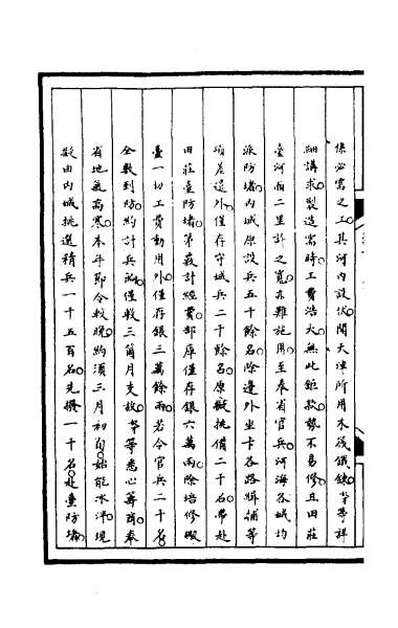 係必需之工其河內設伏聞天津所用木筏鐵鍊等詳
細講求製造需時工費浩大無此鉅款勢不易修且田莊
臺河面二里許之寬亦難施用至奉省官兵河海各城均
派防堵內城原設兵五千餘名除邊外坐卡各路緝捕等
項差遣外僅存守城兵二千餘名原擬挑備二千名帶赴
田莊臺防堵第覈計經費部庫僅存銀六萬兩除培修礮
臺一切工費動用外僅存銀三萬餘兩若令官兵二千名
全數到防約計兵餉僅敷三箇月支放等悉心籌商奉
省地氣高寒本年節令較晚約須三月初旬始能冰泮現
擬由內城挑選精兵一千五百名先撥一千名赴臺防堵